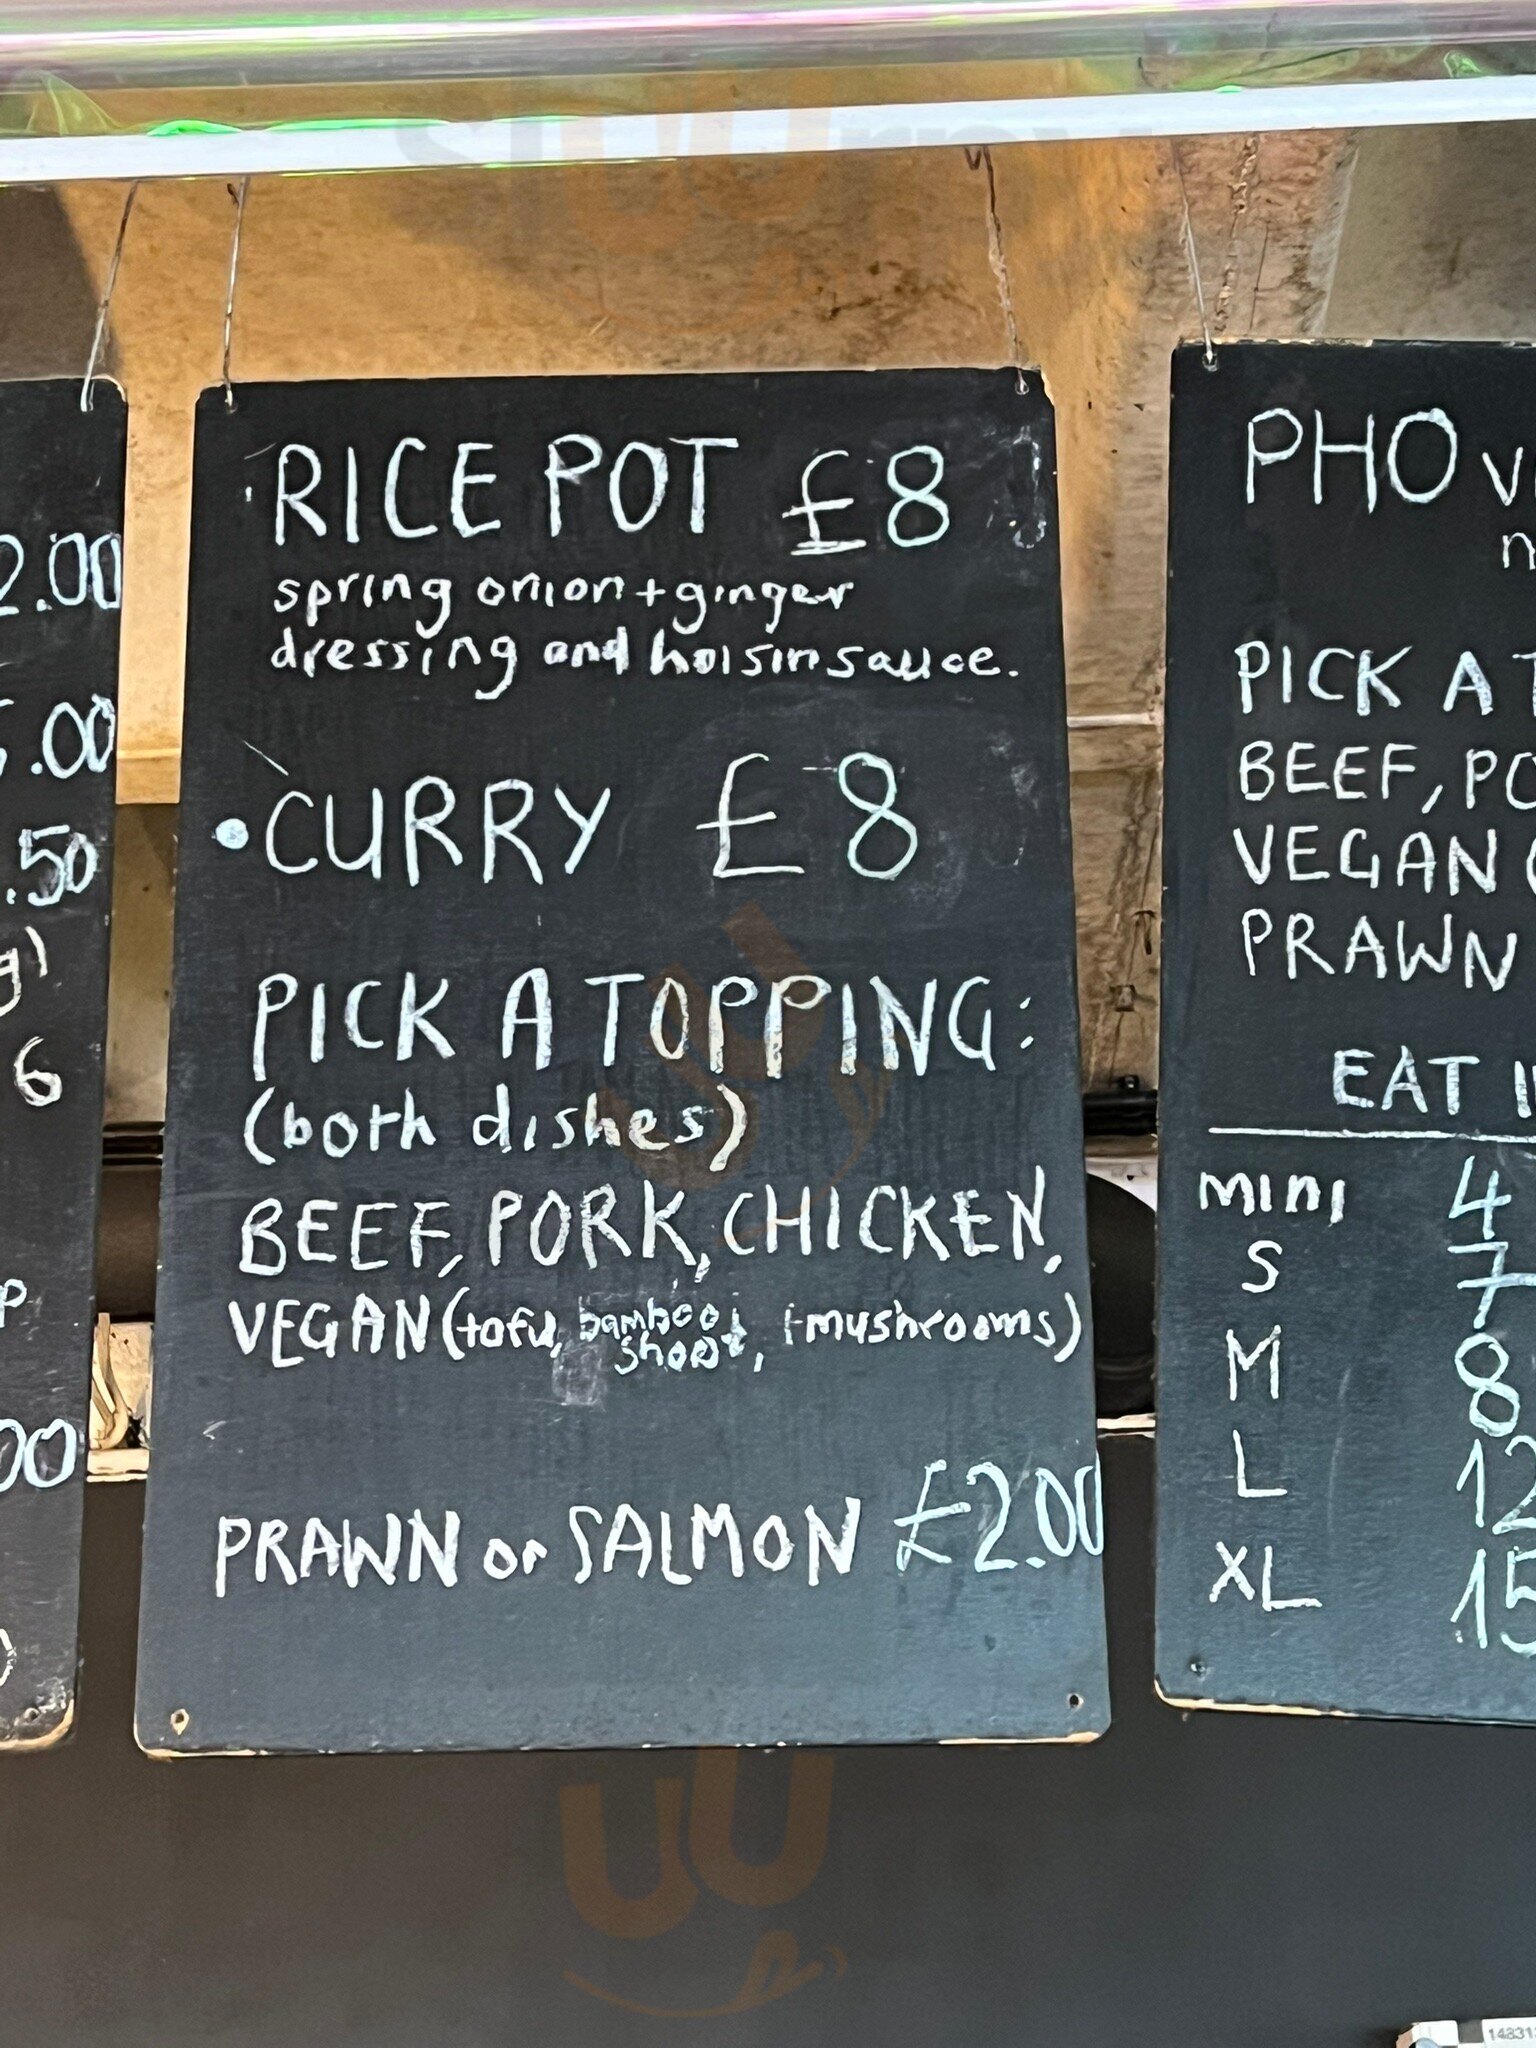 2.00
.00
.50
6
00
RICE POT £8
spring onion + ginger
dressing and hoisin sauce.
• CURRY £8
PICK A TOPPING:
(both dishes)
BEEF, PORK, CHICKEN,
VEGAN (tofu, bamboo shoot, + mushrooms)
PRAWN or SALMON £2.00
PHO
PICK A
BEEF,
VEGAN
PRAWN
EAT
mini 4
S 7
M 8
L 12
XL 15
14831